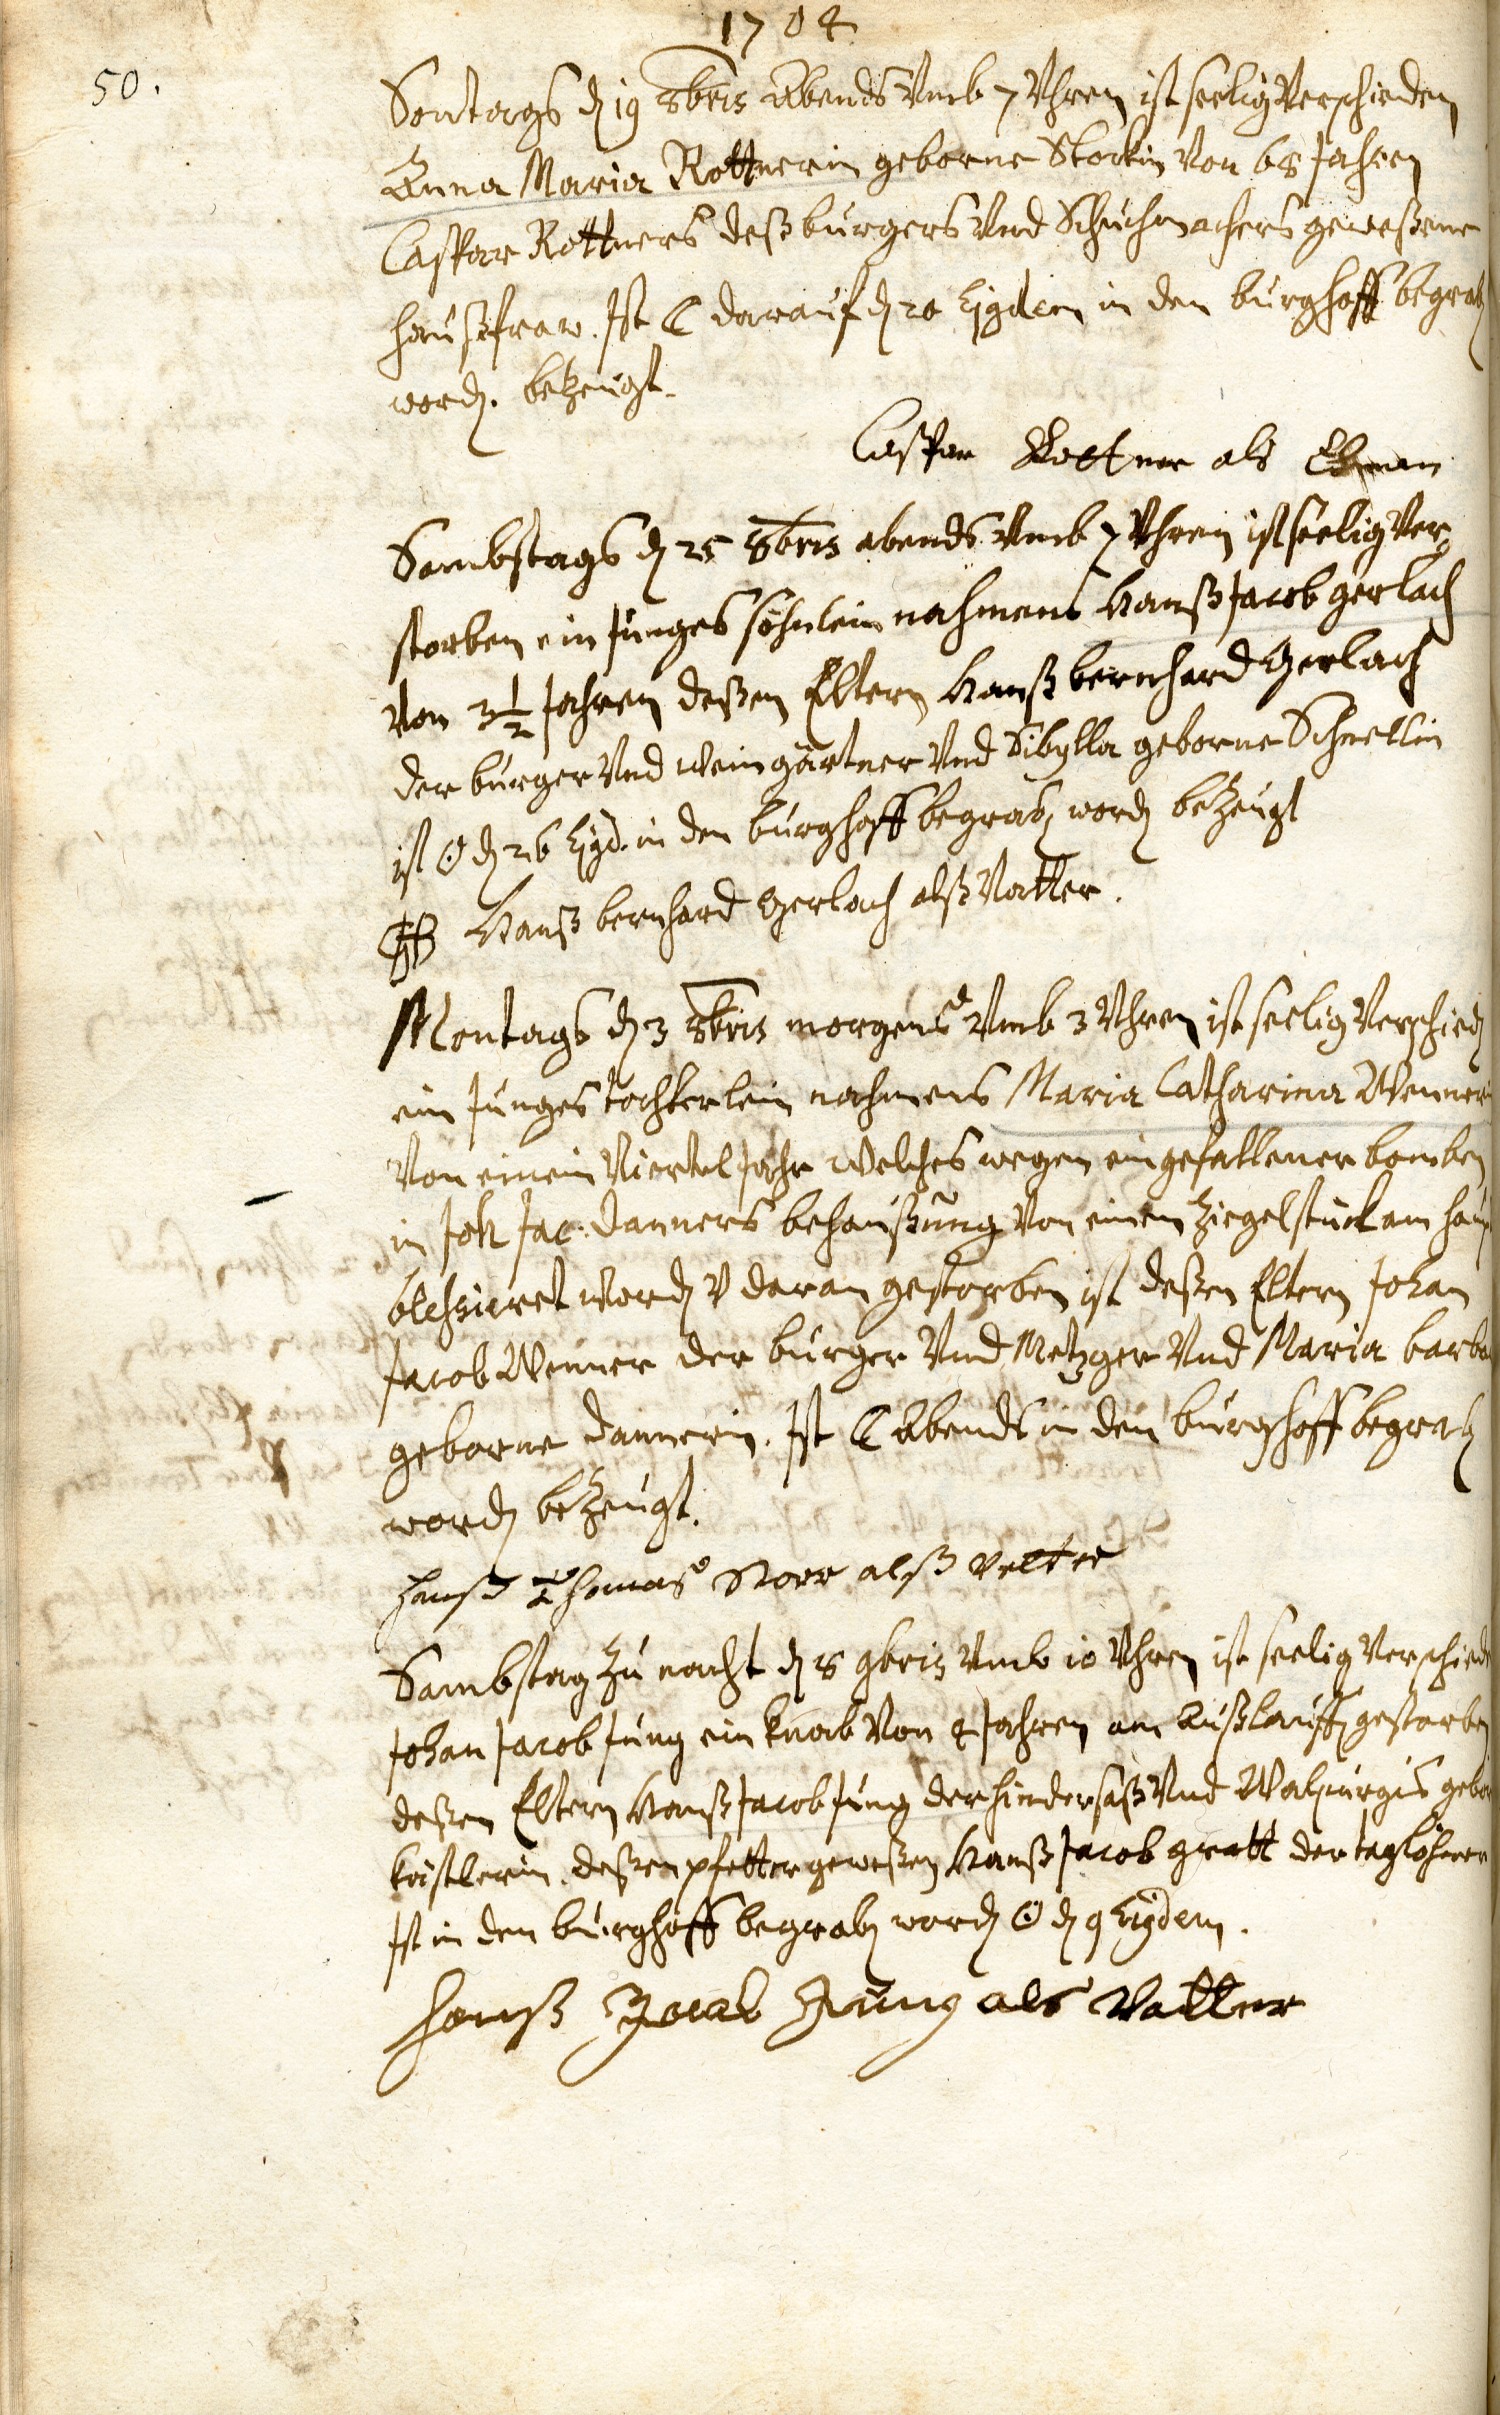 1704
50.
Sontags d. 19 8bris Abends Vmb 7 Vhren ist seelig Verschieden
Anna Maria Rottnerin geborne Storkin Von 68 Jahren
Caspar Rottners deß burgers Vnd Schuhmachers geweßene
haußfraw. Ist ☾ darauf d. 20 Ejusdem in den burghoff begrab.
word. bezeugt.
Caspar Rottner als Ehman
Sambstags d. 25 8bris abends Vmb 7 Vhren ist seelig Ver-
storben ein Junges söhnlein nahmens Hanß Jacob gerlach
Von 3½ Jahren deßen Eltern Hanß bernhard Gerlach
der burger Vnd weingärtner Vnd Sibylla geborne Schnellin
ist ☉ d. 26 Ejusd. in den burghoff begrab. word. bezeugt
Hanß bernhard Gerlach alß Vatter.
Montags d. 3 9bris morgens Vmb 3 Vhren ist seelig Verschied.
ein Junges töchterlein nahmens Maria Catharina Wenner
Von einem Viertel Jahr welches wegen eingefallener bomben
in Joh Jac. Danners behaußung Von einem Ziegelstuck am haup
blessieret word. V daran gestorben ist deßen Eltern Johan
Jacob Wenner der burger Vnd Metzger Vnd Maria barba
geborne Dannerin. Ist ☾ Abends in den burghoff begrab.
word. bezeugt.
Hanß Thomas Storr alß Vetter
Sambstag zu nacht d. 8 9bris Vmb 10 Vhren ist seelig Verschied
Johan Jacob Jung ein knab Von 4 Jahren am Außlauffen gestorben
deßen Eltern Hanß Jacob Jung der hindersaß Vnd Walpurgis gebor
kästlerin. deßen pfetter geweßen Hanß Jacob gratt der taglöhner
Ist in den burghoff begrab. word. ☉ d. 9 Ejusdem.
Hanß Jacob Jung als Vatter